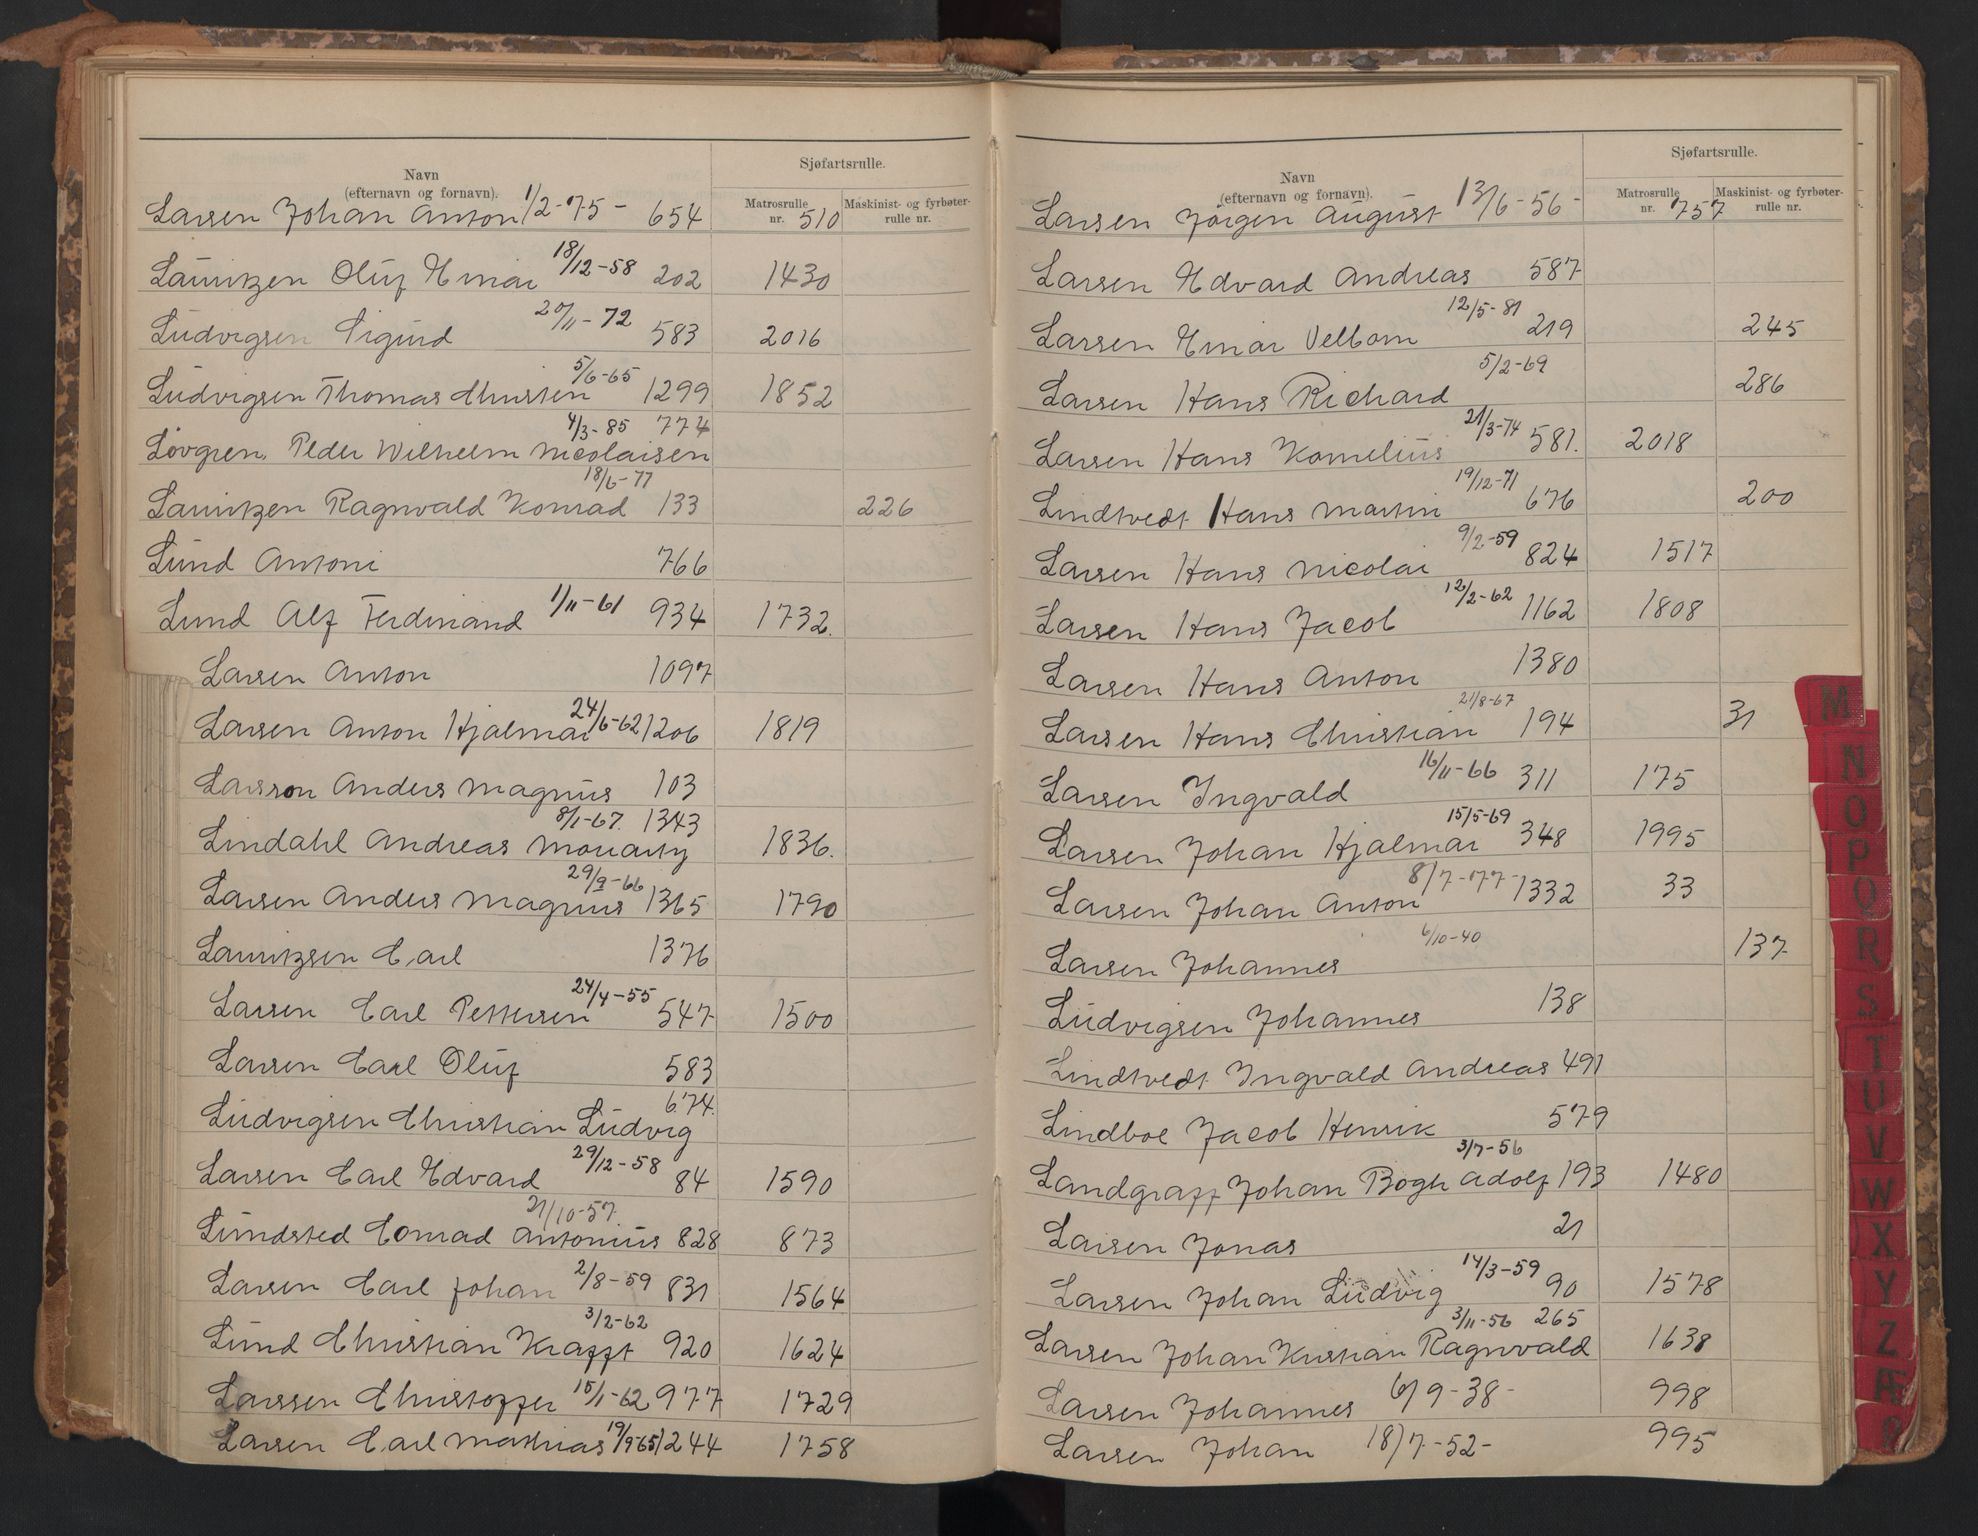 Navn
(efternavn og fornavn).
Sjøfartsrulle.
Matrosrulle nr.
Maskinist- og fyrbøter-rulle nr.
Larsen Johan Anton 1/2-75- 654 510
Lauritzen Oluf Einar 18/12-58 202 1430
Ludvigsen Sigurd 20/11-72 583 2016
Ludvigsen Thomas Christen 5/6-65 1299 1852
Løvgren Peder Wilhelm Nicolaisen 4/3-85 774
Lauritzen Ragnvald Konrad 18/6-77 133 226
Lund Antoni 766
Lund Alf Ferdinand 1/11-61 934 1732.
Larsen Anton 1097
Larsen Anton Hjalmar 24/6-62 1206 1819
Larsson Anders Magnus 103
Lindahl Andreas Moriarty 8/1-67. 1343 1836.
Larsen Anders Magnus 29/9-66 1365 1790
Lauritzsen Carl 1376
Larsen Carl Pettersen 24/4-55 547 1500
Larsen Carl Oluf 583
Ludvigsen Christian Ludvig 674.
Larsen Carl Edvard 29/12-58 84 1590
Lundsted Conrad Antonius 21/10-57. 828 873
Larsen Carl Johan 2/8-59 831 1564
Lund Christian Krafft 3/2-62 920 1624
Larssen Christoffer 15/1-62 977 1729
Larsen Carl Mathias 19/9-65 1244 1758
Navn
(efternavn og fornavn).
Sjøfartsrulle.
Matrosrulle nr.
Maskinist- og fyrbøter-rulle nr.
Larsen Jørgen August 13/6-56- 757
Larsen Edvard Andreas 587
Larsen Einar Velbom 12/5-81 219 245
Larsen Hans Richard 5/2-69 286
Larsen Hans Kornelius 21/3-74 581. 2018
Lindtvedt Hans Martin 19/12-71 676 200
Larsen Hans Nicolai 9/2-59 824 1517
Larsen Hans Jacob 12/2-62 1162 1808
Larsen Hans Anton 1380
Larsen Hans Christian 21/8-67 194 31
Larsen Ingvald 16/11-66 311 175
Larsen Johan Hjalmar 15/5-69 348 1995
Larsen Johan Anton 8/7-77- 1332 33
Larsen Johannes 6/10-40 137
Ludvigsen Johannes 138
Lindtvedt Ingvald Andreas 491
Lindboe Jacob Henrik 579
Landgraff Johan Bøgh Adolf 3/7-56 193 1480
Larsen Jonas 21
Larsen Johan Ludvig 14/3-59 90 1578
Larsen Johan Kristian Ragnvald 3/11-56 265 1638
Larsen Johannes 6/9-38- 998
Larsen Johan 18/7-52- 995
M
N
O
P
Q
R
S
T
U
V
W
X
Y
Z
Æ
Ø